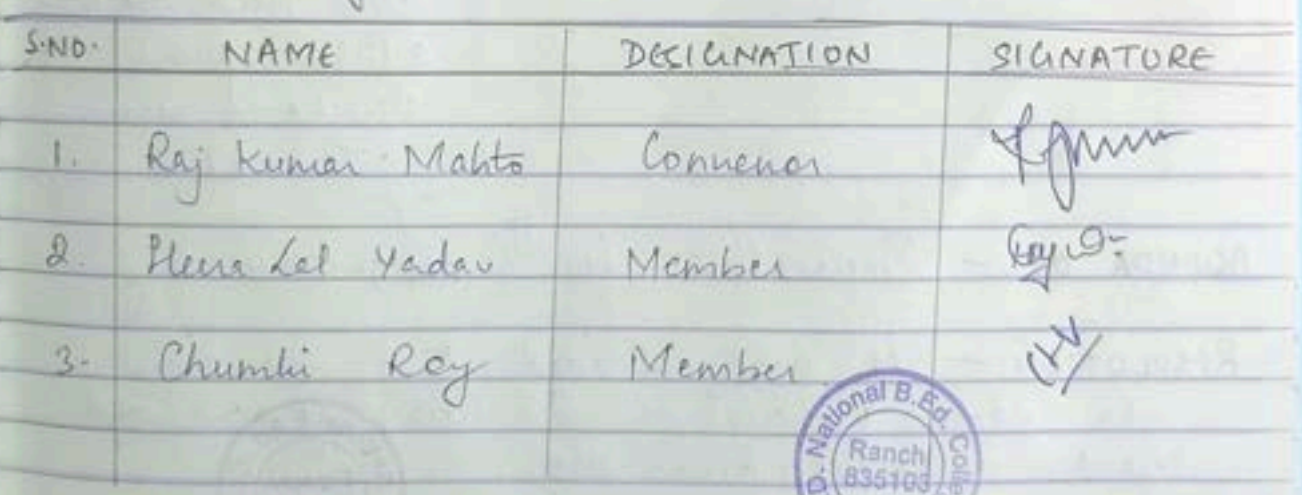 S.NO. NAME DESIGNATION SIGNATURE
1. Raj Kumar Mahto Convenor
2. Heera Lal Yadav Member
3- Chumki Roy Member
D. National B.Ed. Colle
Ranchi
835103